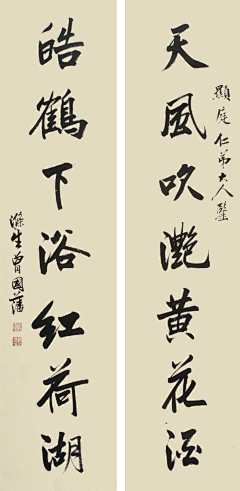 顯庭仁弟大人鑒
天風吹灩黃花酒
皓鶴下浴紅荷湖
滌生曾國藩